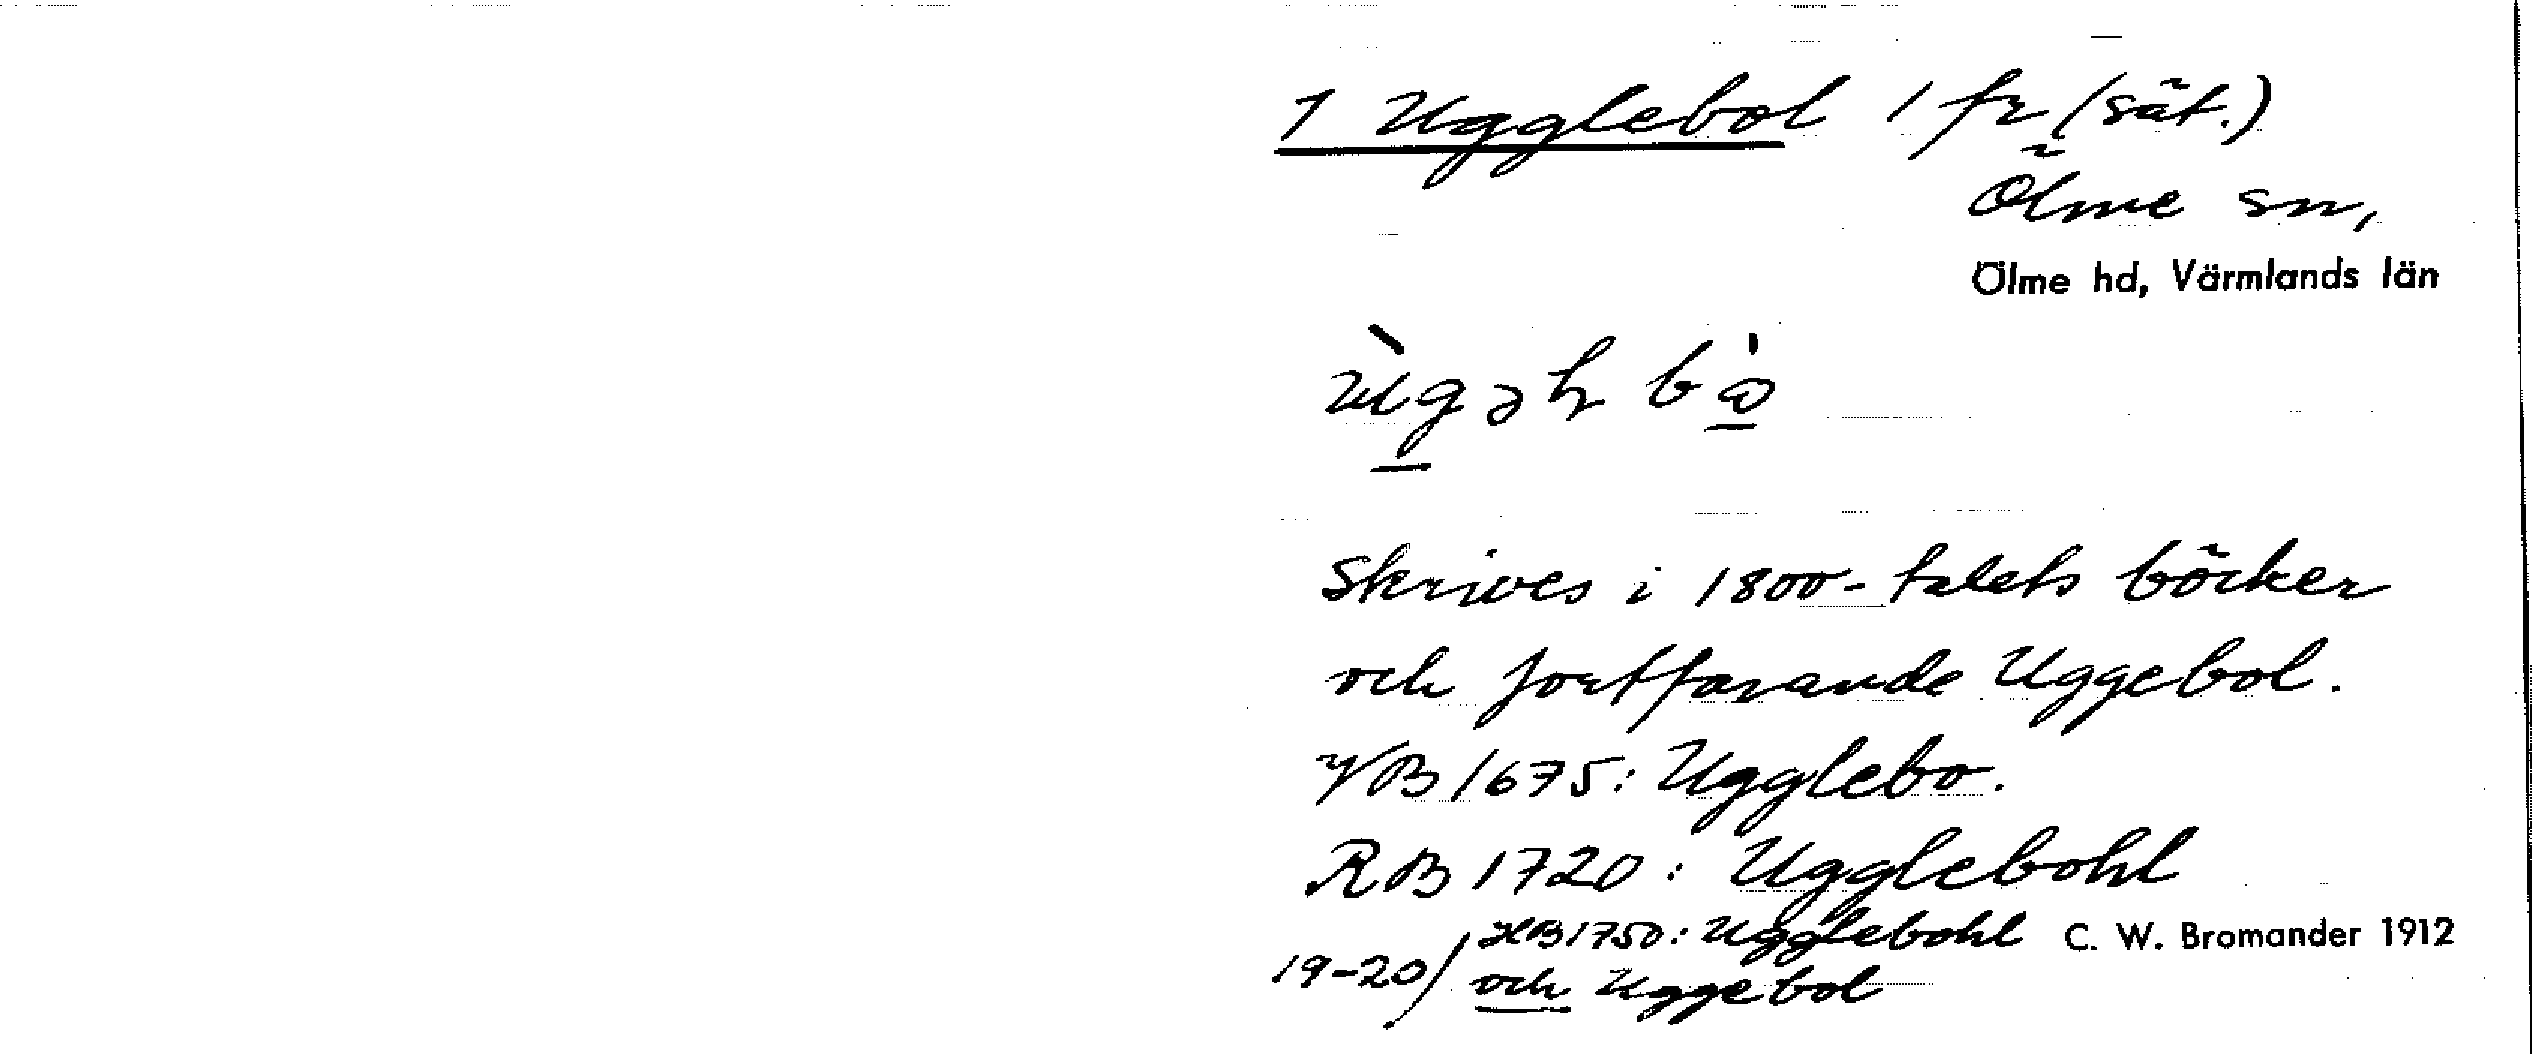 1 Ugglebol 1 fr (sät.)
Ölme sn,
Ölme hd, Värmlands län
Skrives i 1800-talets böcker
och fortfarande Uggebol.
VB 1675: Ugglebo.
RB 1720: Ugglebohl
HB 1750: Ugglebohl C. W. Bromander 1912
19-20/ och Uggebol